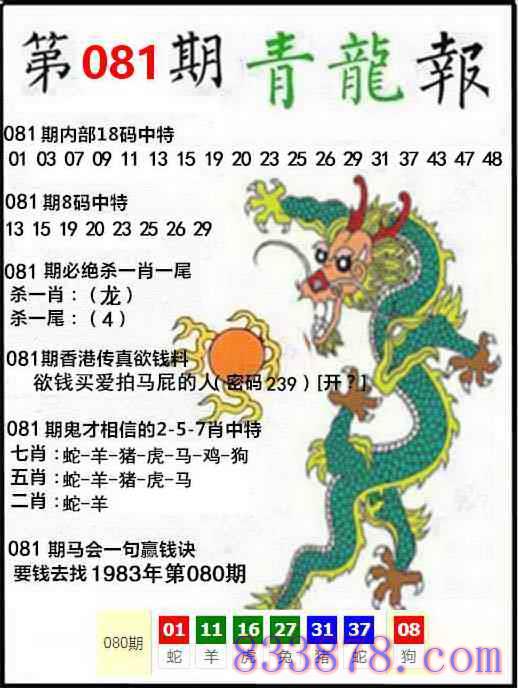 第081期青龍報
081期内部18码中特
01 03 07 09 11 13 15 19 20 23 25 26 29 31 37 43 47 48
081期8码中特
13 15 19 20 23 25 26 29
081期必绝杀一肖一尾
杀一肖:(龙)
杀一尾:(4)
081期香港传真欲钱料
欲钱买爱拍马屁的人(密码239)[开?]
081期鬼才相信的2-5-7肖中特
七肖:蛇-羊-猪-虎-马-鸡-狗
五肖:蛇-羊-猪-虎-马
二肖:蛇-羊
081期马会一句赢钱诀
要钱去找1983年第080期
080期 01 11 16 27 31 37 08
蛇 羊 虎 兔 猪 蛇 狗
833878.com